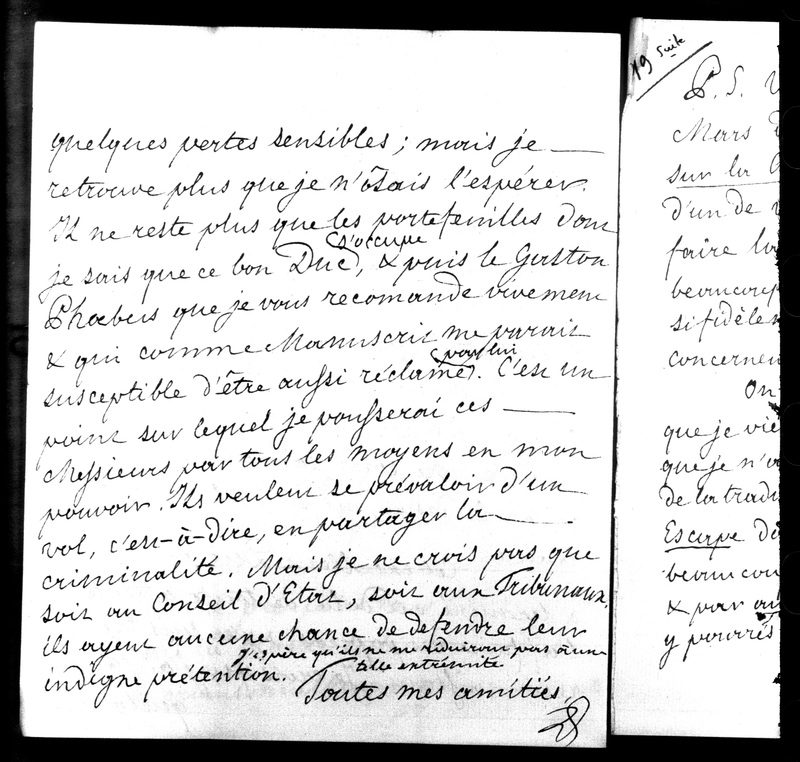 quelques pertes sensibles ; mais je
retrouve plus que je n'ôsais l'espérer.
Il ne reste plus que les portefeuilles dont
s'occupe
je sais que ce bon Duc, & puis le Gaston
Phœbus que je vous recomande vivement
& qui comme Manuscrit me parait
pour lui
susceptible d'être aussi réclamé. C'est un
point sur lequel je pousserai ces
Messieurs par tous les moyens en mon
pouvoir. Ils veulent se prévaloir d'un
vol, c'est-à-dire, en partager la
criminalité. Mais je ne crois pas que
soit au Conseil d'Etat, soit aux Tribunaux,
ils ayent aucune chance de defendre leur
J'espère qu'ils ne me réduiront pas à une
telle extrémité
indigne prétention.
Toutes mes amitiés.
19 suite
P. S.
Mars
sur la
d'un de
faire
beaucoup
si fidèle
concernen
On
que je vie
que je n'
de la tradu
Escape
beaucou
& par
y pourrés